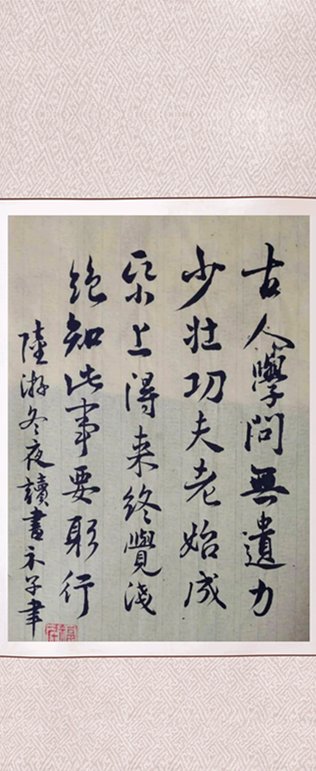 古人學問無遺力
少壮功夫老始成
帋上得来終覺淺
絶知此事要躬行
陸游冬夜讀書示子聿